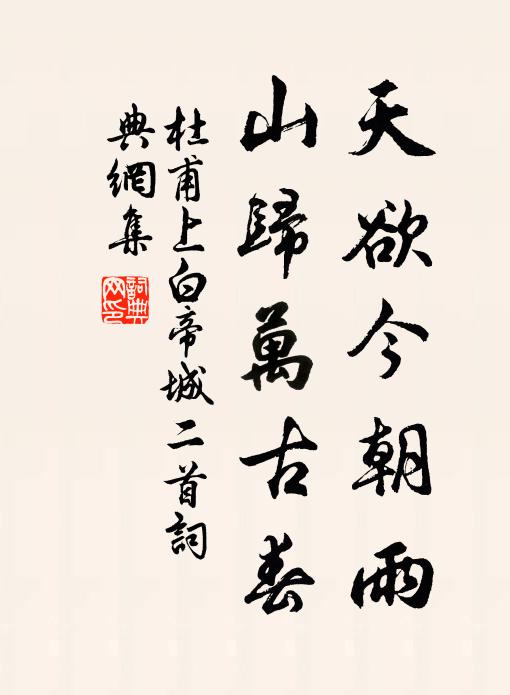 天欲今朝雨
山歸萬古春
杜甫上白帝城二首詞
典網集
詞典
网印